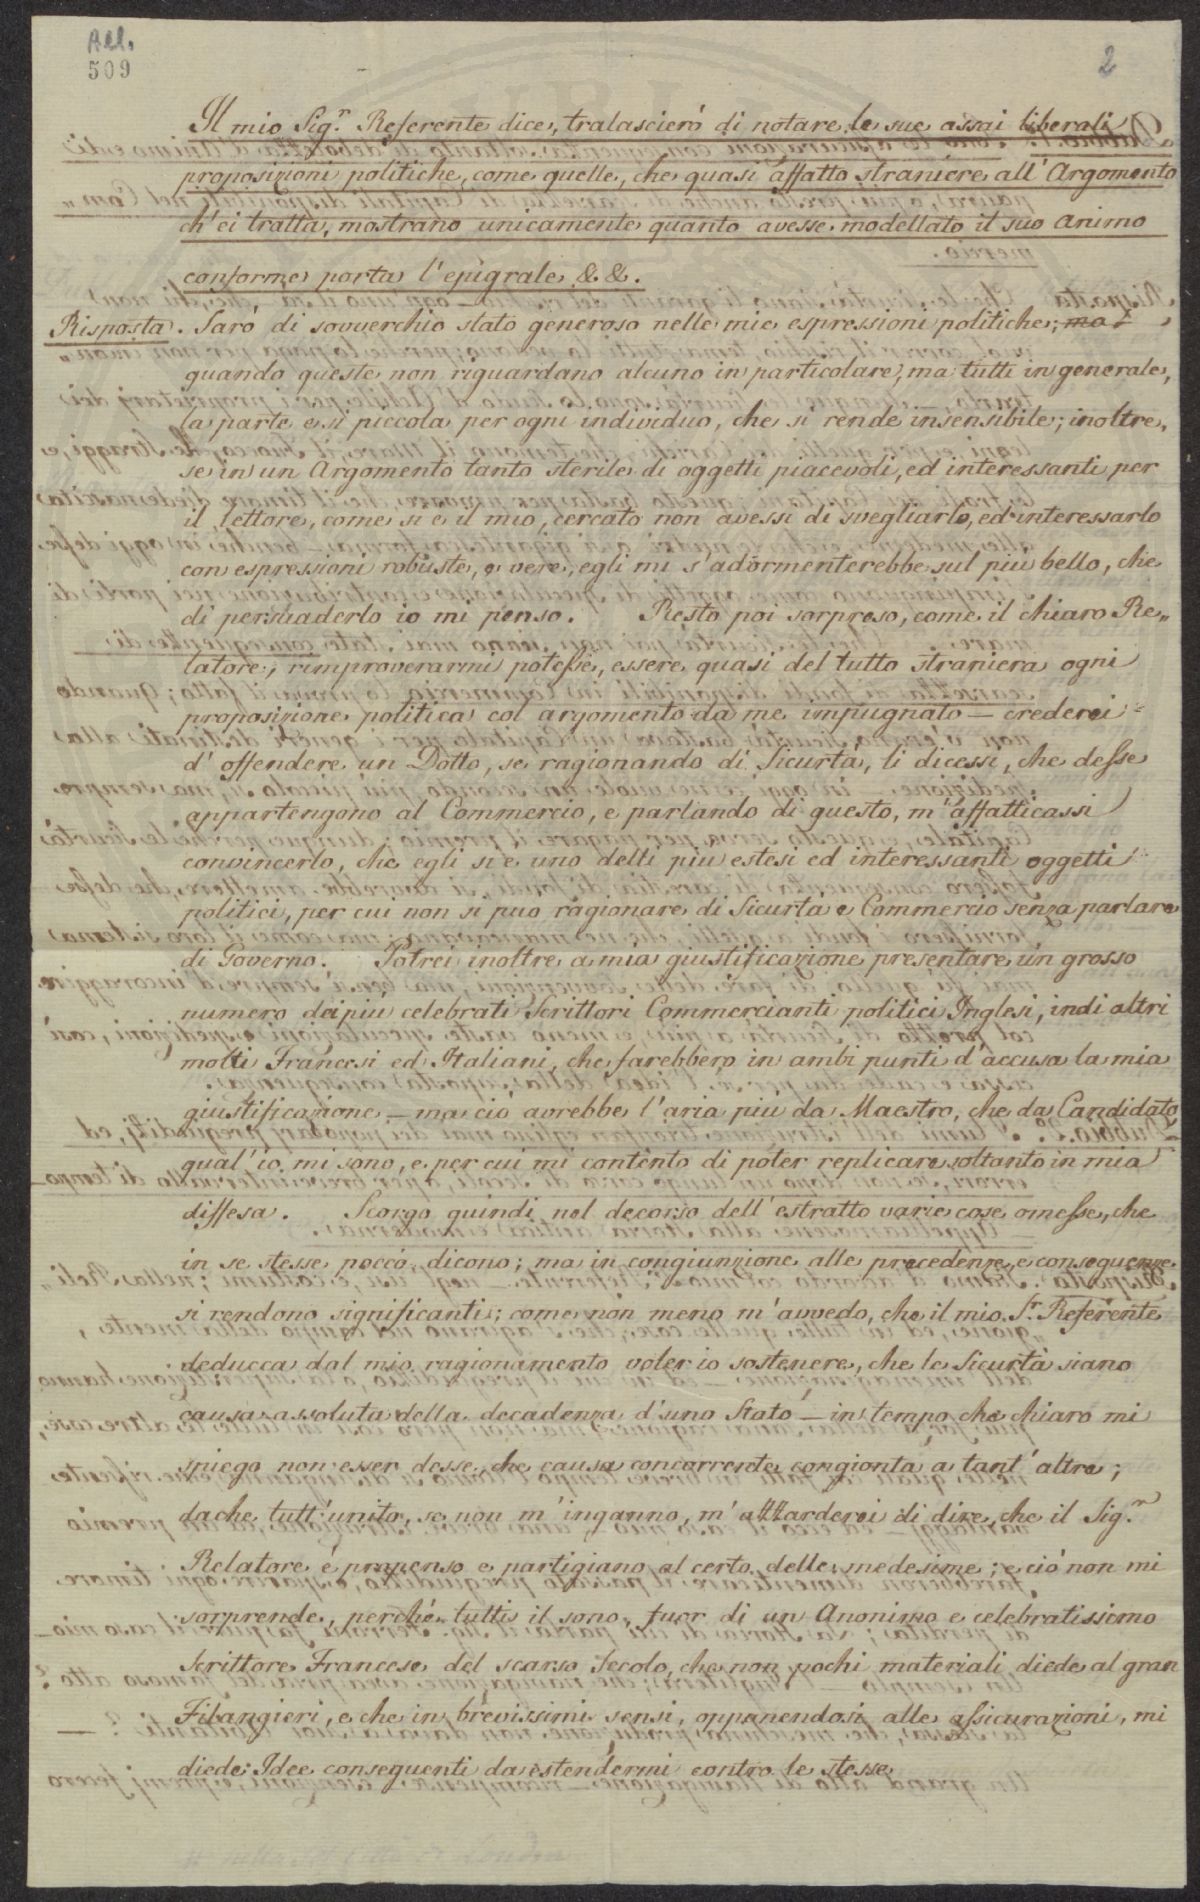 All.
509
2
Il mio Sig.r Referente dice, tralascieró di notare le sue assai liberali
proposizioni politiche, come quelle, che quasi affatto straniere all' Argomento
ch' ei tratta, mostrano unicamente quanto avesse modellato il suo animo
conforme porta l' epigrale &. &.
Risposta. Saró di sovverchio stato generoso nelle mie espressioni politiche; ma
quando queste non riguardano alcuno in particolare, ma tutti in generale,
la parte e si piccola per ogni individuo, che si rende insensibile; inoltre,
se in un Argomento tanto sterile di oggetti piacevoli, ed interessanti per
il lettore, come si e il mio, cercato non avessi di svegliarlo, ed interessarlo
con espressioni robuste, e vere, egli mi s'adormenterebbe sul piu bello, che
di persuaderlo io mi penso. Resto poi sorpreso, come il chiaro Re„
latore, rimproverarmi potesse, essere quasi del tutto straniera ogni
proposizione politica col argomento da me impugnato — crederei
d' offendere un Dotto, se ragionando di Sicurtà, li dicessi, che desse
appartengono al Commercio, e parlando di questo, m'affatticassi
convincerlo, che egli si e uno delli piu estesi ed interessanti oggetti
politici, per cui non si puo ragionare di Sicurtà e Commercio senza parlare
di Governo. Potrei inoltre a mia giustificazione presentare un grosso
numero dei piú celebrati Scrittori Commercianti politici Inglesi, indi altri
molti Francesi ed Italiani, che farebbero in ambi punti d'accusa la mia
giustificazione — ma ció avrebbe l'aria piú da Maestro, che da Candidato
qual' io mi sono, e per cui mi contento di poter replicare soltanto in mia
diffesa. Scorgo quindi nel decorso dell' estratto varie cose omesse, che
in se stesse poccó dicono; ma in congiunzione alle precedenze e conseguenze
si rendono significanti; come non meno m'avvedo, che il mio S.r Referente
deducca dal mio ragionamento voler io sostenere, che le Sicurtà siano
causa assoluta della decadenza d'uno Stato — in tempo che chiaro mi
spiego non esser desse, che causa concorrente congionta a tant' altre;
dache tutt' unito, se non m'inganno, m'azzarderei di dire, che il Sig.r
Relatore é propenso e partigiano al certo delle medesime; e ció non mi
sorprende, perché tutti il sono, fuor di un Anonimo e celebratissimo
Scrittore Francese del scarso Secolo, che non pochi materiali diede al gran
Filangieri, e che in brevissimi sensi, opponendosi alle assicurazioni, mi
diede Idee conseguenti da estendermi contro le stesse